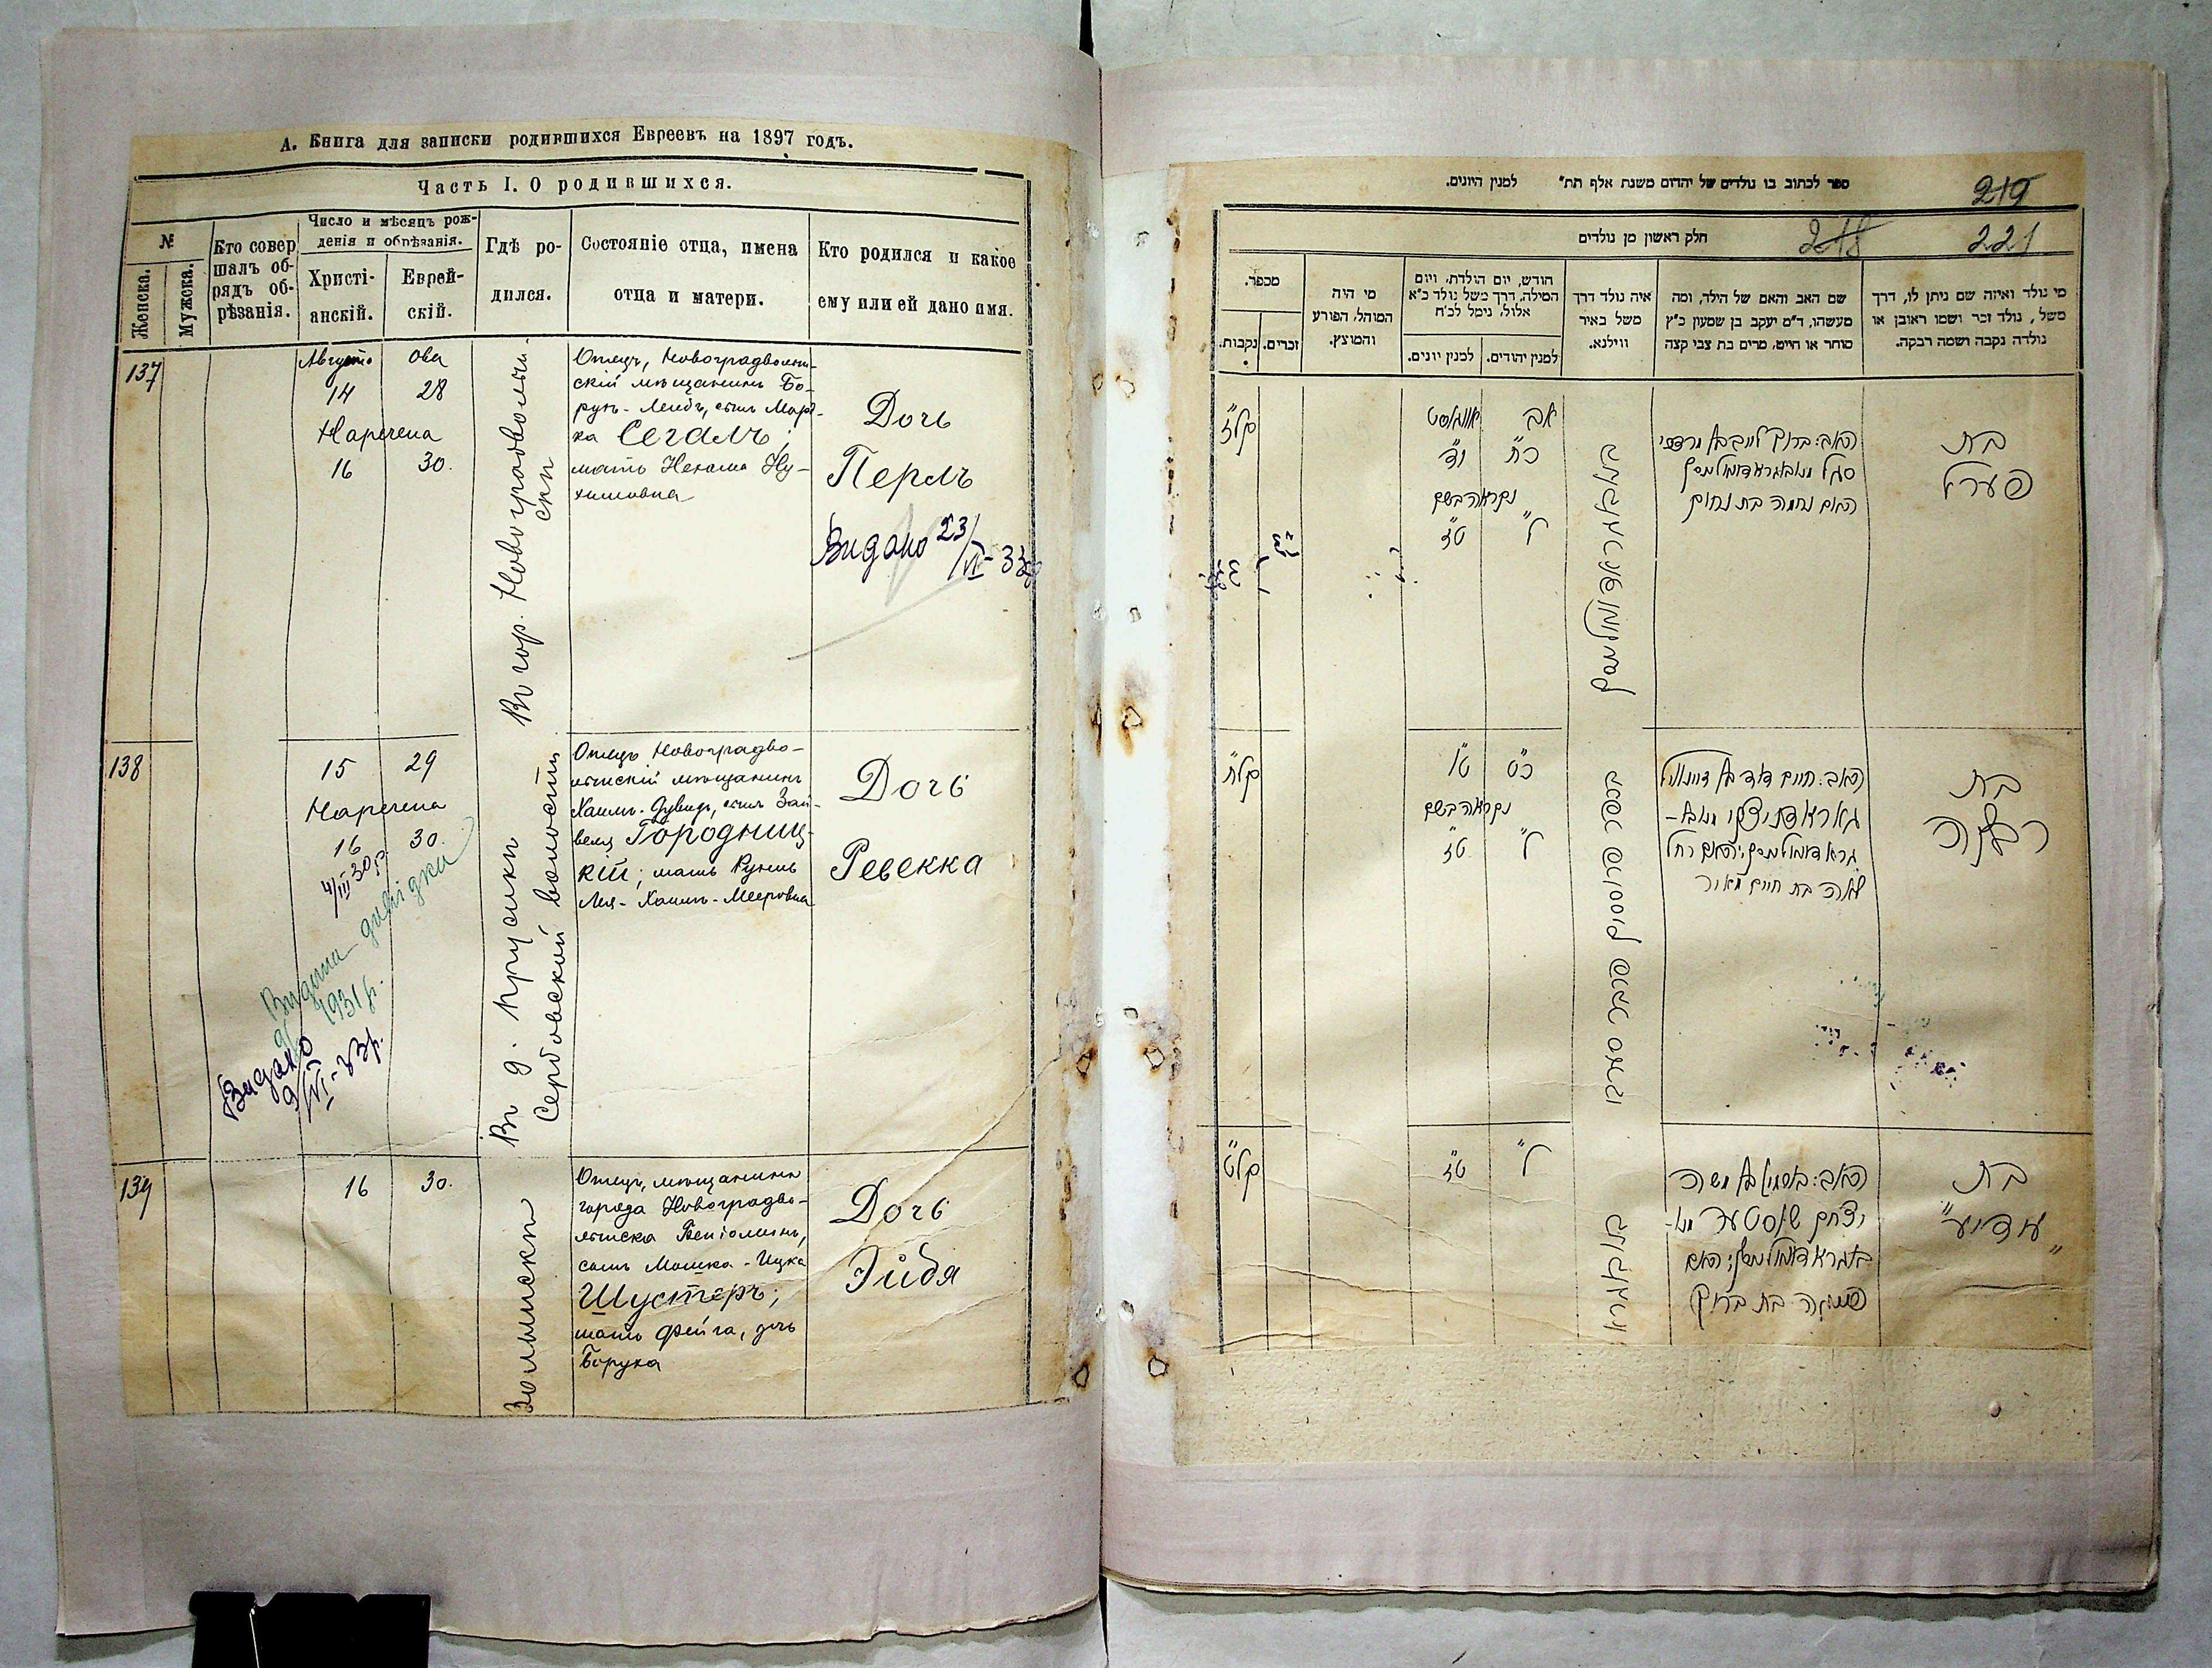 А. Книга для записки родившихся Евреевъ на 1897 годъ.
Часть I. О родившихся.
№
Женска.
Мужска.
Кто совер
шалъ об-
рядъ об-
рѣзанія.
Число и мѣсяцъ рож-
денія и обрѣзанія.
Христі-
анскій.
Еврей-
скій.
Гдѣ ро-
дился.
Состояніе отца, имена
отца и матери.
Кто родился и какое
ему или ей дано имя.
137
Августа
14
Наречена
16
Ова
28
30.
Въ гор. Новоградволын-
скѣ
Отецъ, Новоградволын-
скій мѣщанинъ Бо-
рухъ-Лейбъ, сынъ Морт-
ка Сегалъ;
мать Нехама Ну-
химовна
Дочь
Перль
Видано 23/VI-33р
138
15
29
Наречена
16
30.
4/III 30р
Видана довідка
1931р.
Видано
9/VI-33р.
Въ д. Прусики
Сербовской волости
Отецъ Новоградво-
лынскій мѣщанинъ
Хаимъ-Дувидъ, сынъ Зай-
веля Городниц-
кій; мать Рухль
Лея-Хаимъ-Мееровна
Дочь
Ревекка
139
16
30.
Волынскѣ
Отецъ, мѣщанинъ
города Новоградво-
лынска Беніоминъ,
сынъ Мошка-Ицка
Шустеръ;
мать Фейга, дочь
Боруха
Дочь
Эйдя
ספר לכתוב בו נולדים של יהדום משנת אלף תת" למנין היונים.
219
חלק ראשון מן נולדים
218
221
מי נולד ואיזה שם ניתן לו, דרך
משל, נולד זכר ושמו ראובן או
נולדה נקבה ושמה רבקה.
שם האב והאם של הילד, ומה
מעשהו, ד"מ יעקב בן שמעון כ"ץ
סוחר או חייט, מרים בת צבי קצה
איה נולד דרך
משל באיר
ווילנא.
חודש, יום הולדת, ויום
המילה, דרך משל נולד כ"א
אלול, נימל לכ"ח
למנין יהודים.
למנין יונים.
מי היה
המוהל, הפורע
והמוצץ.
מספר.
זכרים.
נקבות.
בת
פערל
האב: ברוך לייב בן מרדכי
סגל מנאוואגראדוואלינסק
האם נחמה בת נחום
אב
כ"ח
אווגוסט
י"ד
נקראה בשם
ל"
ט"ז
קל"ז
בת
רבקה
האב: חיים דוד בן זיינוויל
גאראדניצקי מנאווא-
גראדוואלינסק; האם רחל
לאה בת חיים מאיר
כ"ט
ט"ו
נקראה בשם
ל"
ט"ז
קל"ח
בת
"עודיע"
האב: בנימין בן משה
יצחק שוסטער מנאוו-
אגראדוואלינסק; האם
פייגה בת ברוך
ל"
ט"ז
קל"ט